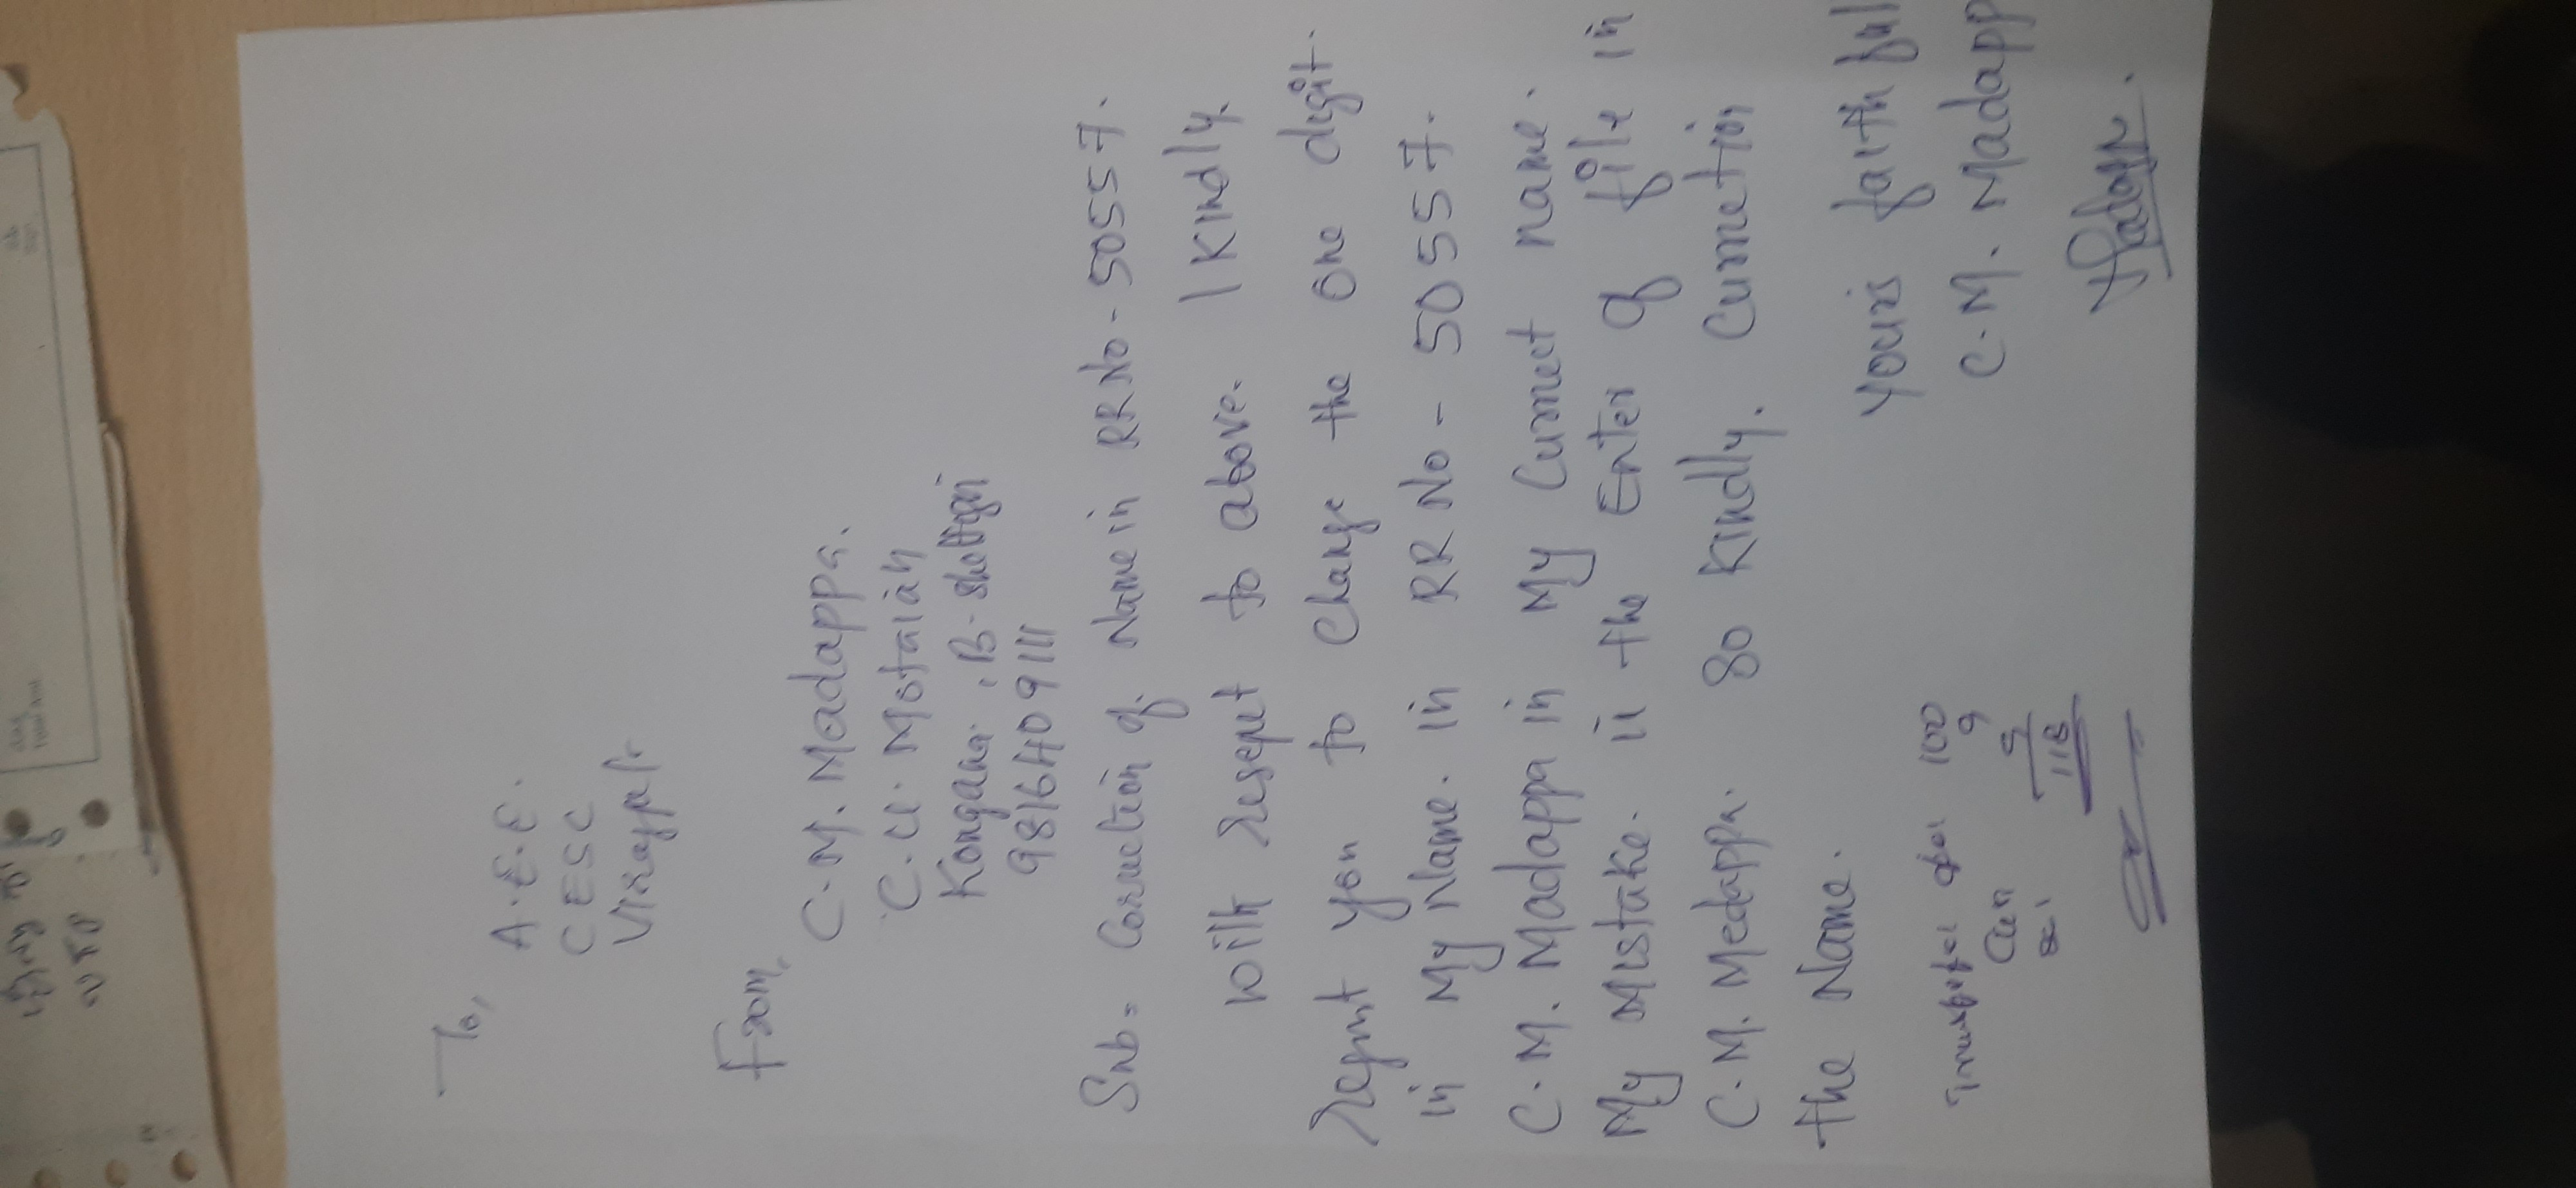 To,
A.E.E.
CESC
Virajpet.
From,
C.M. Madappa.
C.U. Motaiah
Kongana, B-Shettigeri
9816409111
Sub= Correction of Name in RR No - 50557.
With Resept to above. I Kindly
Requst you to Change the one digit.
in My Name. in RR No - 50557.
C.M. Madappa in My Currect name.
My Mistake. is the Enter of file in
C.M. Medappa. So Kindly. Currection
the Name.
Yours faith ful
C.M. Madapp
100
9
9
118